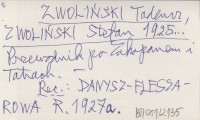 ZWOLIŃSKI Tadeusz,
ZWOLIŃSKI Stefan 1925...
Przewodnik po Zakopanem i
Tatrach.
Rec.: DANYSZ-FLESZA-
ROWA R. 1927a.